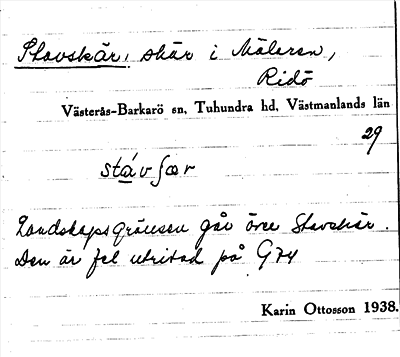 Stavskär, skär i Mälaren,
Ridö
Västerås-Barkarö sn, Tuhundra hd, Västmanlands län
29
stávʃær
Landskapsgränsen går över Stavskär.
Den är fel utritad på G74
Karin Ottosson 1938.